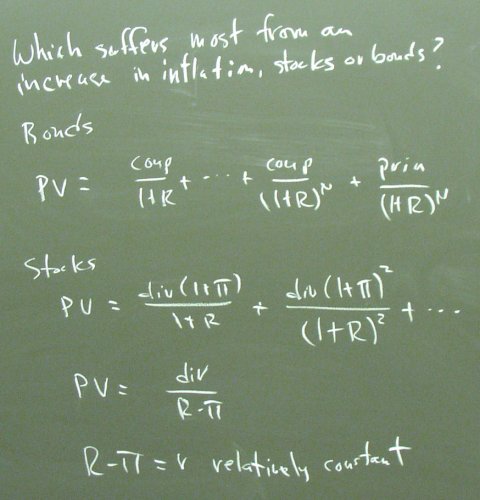 Which suffers most from an
increase in inflation, stocks or bonds?
Bonds
PV = coup/(1+R) + ··· + coup/(1+R)^N + prin/(1+R)^N
Stocks
PV = div(1+π)/(1+R) + div(1+π)^2/(1+R)^2 + ···
PV = div/(R-π)
R-π = r relatively constant